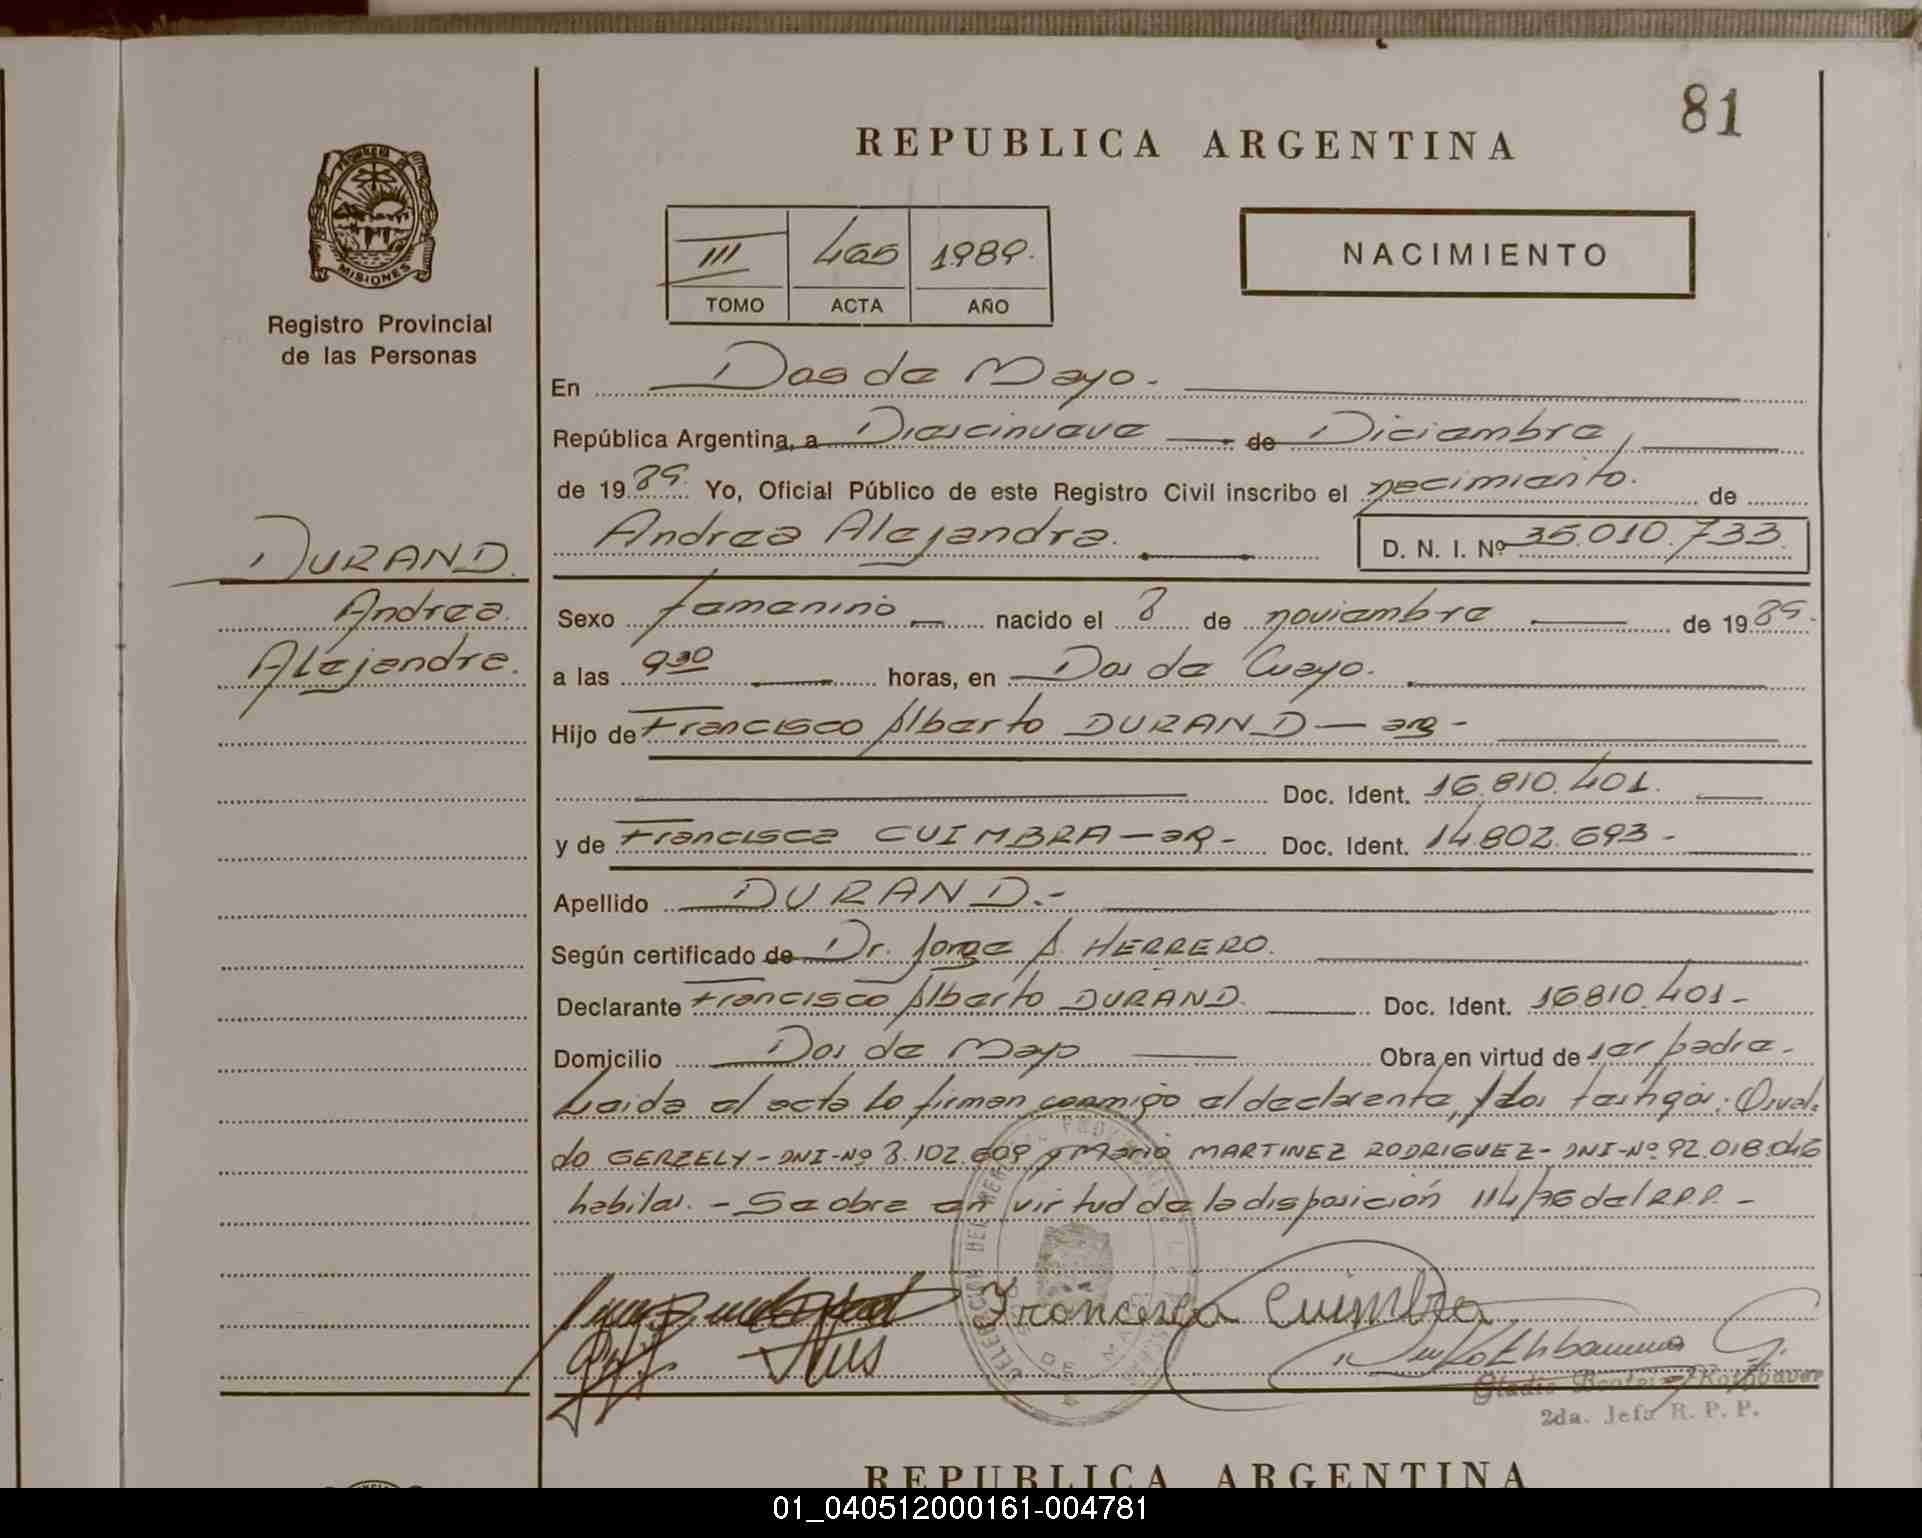 81
REPUBLICA ARGENTINA
MISIONES
Registro Provincial
de las Personas
III 465 1989.
TOMO ACTA AÑO
NACIMIENTO
En Dos de Mayo.-
República Argentina, a Diescinueve de Diciembre,
de 1989. Yo, Oficial Público de este Registro Civil inscribo el necimiento. de
Andrea Alejandra. D. N. I. Nº 35.010.733.
DURAND.
Andrea.
Alejandra.
Sexo femenino nacido el 8 de noviembre de 1989.
a las 9³⁰ horas, en Dos de Mayo.
Hijo de Francisco Alberto DURAND — arg -
Doc. Ident. 16.810.401.
y de Francisca CUIMBRA — arg - Doc. Ident. 14.802.693 -
Apellido DURAND.-
Según certificado de Dr. Jorge A. HERRERO.
Declarante Francisco Alberto DURAND. Doc. Ident. 16.810.401-
Domicilio Dos de Mayo Obra en virtud de ser padre.
Leida el acta lo firman conmigo el declarante, y los testigos: Osval-
do GERZELY - DNI-Nº 8.102.609 y Mario MARTINEZ RODRIGUEZ - DNI-Nº 92.018.046
habiles. - Se obra en virtud de la disposición 114/76 del R.P.P. -
Francisca Cuimbra
DELEGACION DEL
DOS DE MAYO
Gladis Beatriz Rothbauer
2da. Jefa R. P. P.
REPUBLICA ARGENTINA
01_040512000161-004781